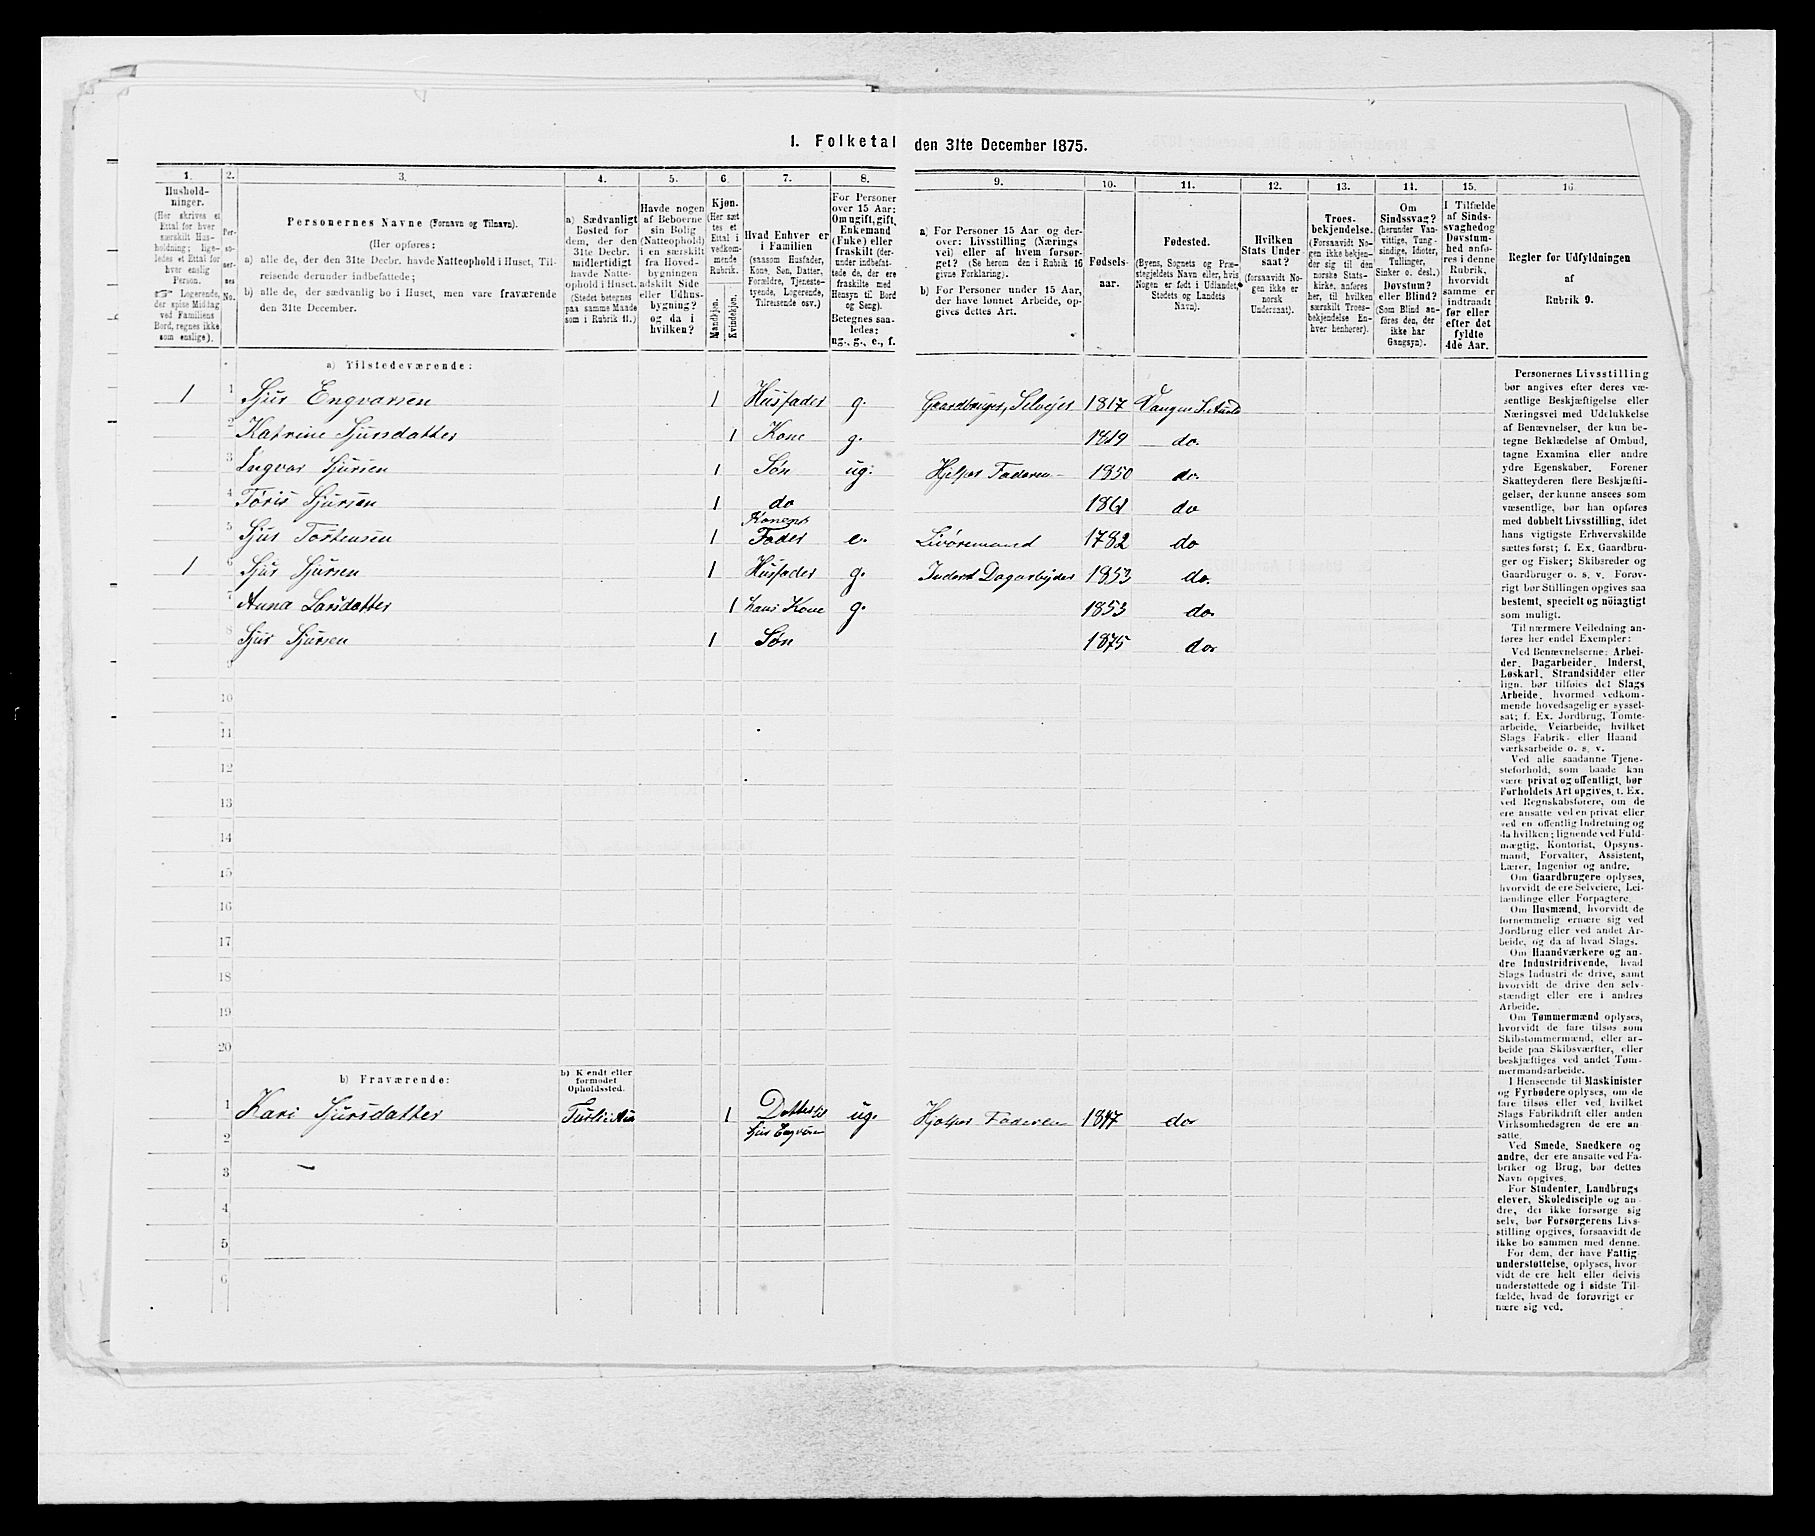 1. Folketal den 31te December 1875.
1. 2. 3. 4. 5. 6. 7. 8. 9. 10. 11. 12. 13. 14. 15. 16.
Hushold-
ninger.
(Her skrives et
Ettal for hver
særskilt Hus-
holdning; lige-
ledes et Ettal for
hver enslig
Person.
☞ Logerende,
der spise Middag
ved Familiens
Bord, regnes ikke
som enslige).
Per-
so-
ner-
nes
No.
Personernes Navne (Fornavn og Tilnavn).
(Her opføres:
a) alle de, der den 31te Decbr. havde Natteophold i Huset, Til-
reisende derunder indbefattede;
b) alle de, der sædvanlig bo i Huset, men vare fraværende
den 31te December.
a) Sædvanligt
Bosted for
dem, der den
31te Decbr.
midlertidigt
havde Natte-
ophold i Huset.
(Stedet betegnes
paa samme Maade
som i Rubrik 11.)
Havde nogen
af Beboerne
sin Bolig
(Natteophold)
i en særskilt
fra Hoved-
bygningen
adskilt Side
eller Udhus-
bygning?
og da i
hvilken?
Kjøn.
(Her sæt
tes et
Ettal i
vedkom-
mende
Rubrik.
Mandkjøn.
Kvindekjøn.
Hvad Enhver er
i Familien
(saasom Husfader,
Kone, Søn, Datter,
Forældre, Tjeneste-
tyende, Logerende,
Tilreisende osv.)
For Personer
over 15 Aar:
Om ugift, gift,
Enkemand
(Enke) eller
fraskilt (der-
under indbefat-
tede de, der ere
fraskilte med
Hensyn til Bord
og Seng).
Betegnes saa-
ledes:
ug., g., e., f.
a) For Personer 15 Aar og der-
over: Livsstilling (Nærings
vei) eller af hvem forsør-
get? (Se herom den i Rubrik 16
givne Forklaring).
b) For Personer under 15 Aar,
der have lønnet Arbeide, op-
gives dettes Art.
Fødsels-
aar.
Fødested.
(Byens, Sognets og Præ-
stegjeldets Navn eller, hvis
Nogen er født i Udlandet,
Stedets og Landets
Navn).
Hvilken
Stats Under
saat?
(forsaavidt No-
gen ikke er
norsk
Undersaat).
Troes-
bekjendelse.
(Forsaavidt No-
gen ikke bekjen-
der sig til den
norske Stats-
kirke, anføres
her, til hvilken
særskilt Troes-
bekjendelse En-
hver henhører).
Om
Sindssvag?
(herunder Van-
vittige, Tung-
sindige, Idioter,
Tullinger,
Sinker o. desl.)
Døvstum?
eller Blind?
(Som Blind an-
føres den, der
ikke har
Gangsyn).
I Tilfælde
af Sinds-
svaghed og
Døvstum-
hed anfø-
res i denne
Rubrik,
hvorvidt
samme er
indtraadt
før eller
efter det
fyldte
4de Aar.
Regler for Udfyldningen
af
Rubrik 9.
a) Tilstedeværende:
1 1 Sjur Engvarsen 1 Husfader g. Gaardbruger, Selveier 1817 Vangen S.
2 Katrine Sjursdatter 1 Kone g. 1819 do
3 Engvar Sjursen 1 Søn ug. Hjelper Faderen 1850 do.
4 Sjursen 1 do 1861 do
5 Sjur Torstensen 1 Konens Fader e. 1782 do
1 6 Sjur Sjursen 1 Husfader g. Inderst Dagarbejder 1853 do.
7 Anna Larsdatter 1 hans Kone g. 1853 do.
8 Sjur Sjursen 1 Søn 1875 do
9
10
11
12
13
14
15
16
17
18
19
20
b) Fraværende:
b) Kendt eller
formodet
Opholdssted.
1 Kari Sjursdatter 1 Datter til ug. Hjelper Faderen 1847 do
2 Sjur
3
4
5
6
Personernes Livsstilling
bør angives efter deres væ-
sentlige Beskjæftigelse eller
Næringsvei med Udelukkelse
af Benævnelser, der kun be-
tegne Beklædelse af Ombud,
tagne Examina eller andre
ydre Egenskaber. Forener
Skatteyderen flere Beskjæfti-
gelser, der kunne ansees som
væsentlige, bør han opføres
med dobbelt Livsstilling, idet
hans vigtigste Erhvervskilde
sættes først; f. Ex. Gaardbru-
ger og Fisker; Skibsreder og
Gaardbruger o. s. v. Forøv-
rigt bør Stillingen opgives saa
bestemt, specielt og nøiagtigt
som muligt.
Til nærmere Veiledning an-
føres her endel Exempler:
Ved Benævnelserne: Arbei-
der, Dagarbeider, Inderst,
Løskarl, Strandsidder eller
lign. bør tilføies det Slags
Arbeide, hvormed vedkom-
mende hovedsagelig er syssel-
sat; f. Ex. Jordbrug, Tomte-
arbeide, Veiarbeide, hvilket
Slags Fabrik- eller Haand
værksarbeide o. s. v.
Ved alle saadanne Tjene-
steforhold, som baade kan
være privat og offentligt, bør
Forholdets Art opgives, t. Ex.
ved Regnskabsførere, om de
ere ansatte ved en privat eller
ved en offentlig Indretning og
da hvilken; lignende ved Fuld-
mægtig, Kontorist, Opsyns-
mand, Forvalter, Assistent,
Lærer, Ingeniør og andre.
Om Gaardbrugere oplyses,
hvorvidt de ere Selveiere, Lei-
lændinge eller Forpagtere.
Om Husmænd, hvorvidt de
fornemmelig ernære sig ved
Jordbrug eller ved andet Ar-
beide, og da af hvad Slags.
Om Haandværkere og an-
dre Industridrivende, hvad
Slags Industri de drive, samt
hvorvidt de drive den selv-
stændigt eller ere i andres
Arbeide.
Om Tømmermænd oplyses,
hvorvidt de fare tilsøs som
Skibstømmermænd, eller ar-
beide paa Skibsværfter, eller
beskjæftiges ved andet Tøm-
mermandsarbeide.
I Henseende til Maskinister
og Fyrbødere oplyses, om de
fare tilsøs eller ved hvilket
Slags Fabrikdrift eller anden
Virksomhedsgren de ere an-
satte.
Ved Smede, Snedkere og
andre, der ere ansatte ved Fa-
briker og Brug, bør dettes
Navn opgives.
For Studenter, Landbrugs
elever, Skoledisciple og an-
dre, der ikke forsørge sig
selv, bør Forsørgerens Livs-
stilling opgives, forsaavidt de
ikke bo sammen med denne.
For dem, der have Fattig
understøttelse, oplyses, hvor-
vidt de ere helt eller delvis
understøttede og i sidste Til-
fælde, hvad de forøvrigt er
nære sig ved.